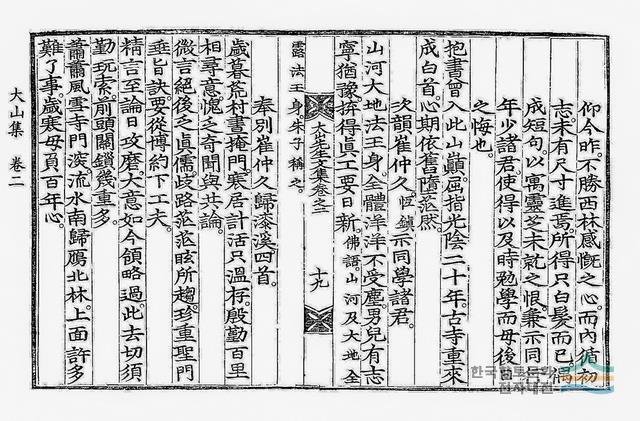 仰今昨。不勝西林感慨之心。而內循初
志未有尺寸進焉。所得只白髮而已。偶
成短句。以寓靈芝未就之恨。兼示同
年少諸君。使得以及時勉學而毋後
之悔也。
抱書曾入此山巓。屈指光陰二十年。古寺重來
成白首。心期依舊墮茫然。
次韻崔仲久恒鎭示同學諸君。
山河大地法王身。全體洋洋不受塵。男兒有志
寧猶豫。拚得眞工要日新。佛語。山河及大地全
大山先生文集卷之二 十九
露法王身。朱子稱之。
奉別崔仲久歸漆溪四首。
歲暮荒村晝掩門。寒居計活只溫存。殷勤百里
相尋意。愧乏奇聞與共論。
微言絶後乏眞儒。歧路茫茫眩所趨。珍重聖門
垂旨訣。要從博約下工夫。
精言至論日攻磨。大意如今領略過。此去切須
勤玩索。前頭關鎖幾重多。
蕭蕭風雪寺門深。流水南歸鴈北林。上面許多
難了事。歲寒毋負百年心。
大山集 卷二
한국향토문화
전자대전